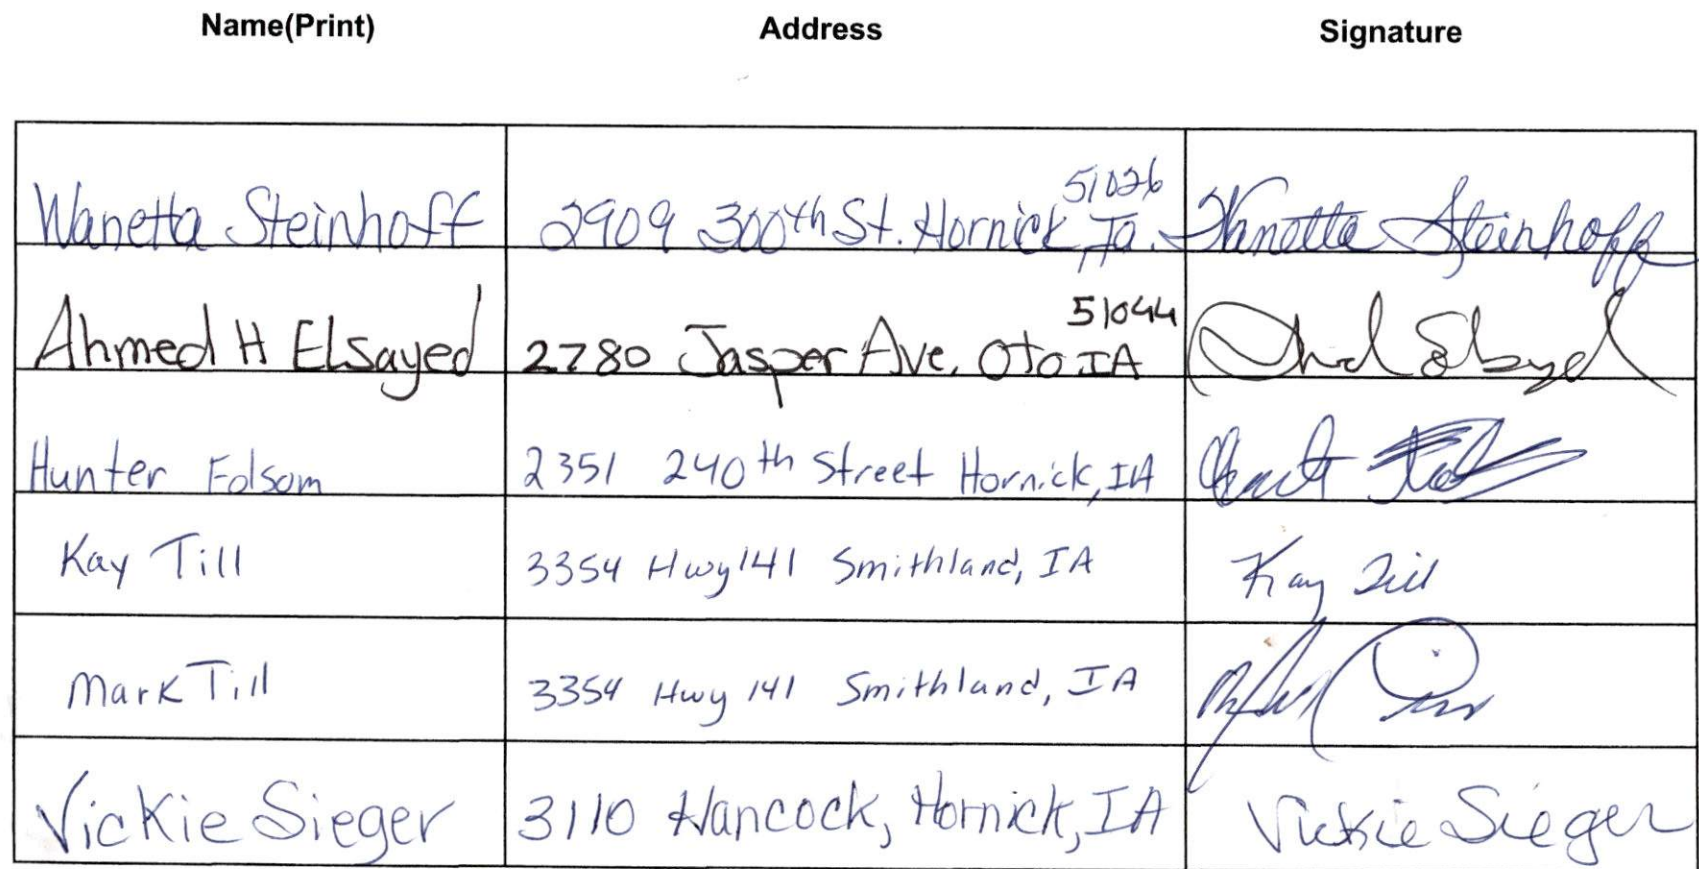 Name(Print) Address Signature
Wanetta Steinhoff 2909 300th St. Hornick, Ia. 51026 Wanetta Steinhoff
Ahmed H Elsayed 2780 Jasper Ave. Oto IA 51044
Hunter Folsom 2351 240th Street Hornick, IA
Kay Till 3354 Hwy 141 Smithland, IA Kay Till
Mark Till 3354 Hwy 141 Smithland, IA
Vickie Sieger 3110 Hancock, Hornick, IA Vickie Sieger